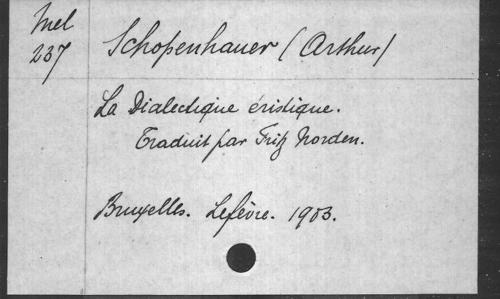 Mel
237
Schopenhauer (Arthur)
La Dialectique éristique.
Traduit par Fritz Norden.
Bruxelles. Lefèvre. 1903.